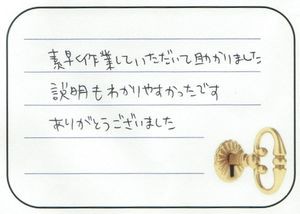 素早く作業していただいて助かりました
説明もわかりやすかったです
ありがとうございました